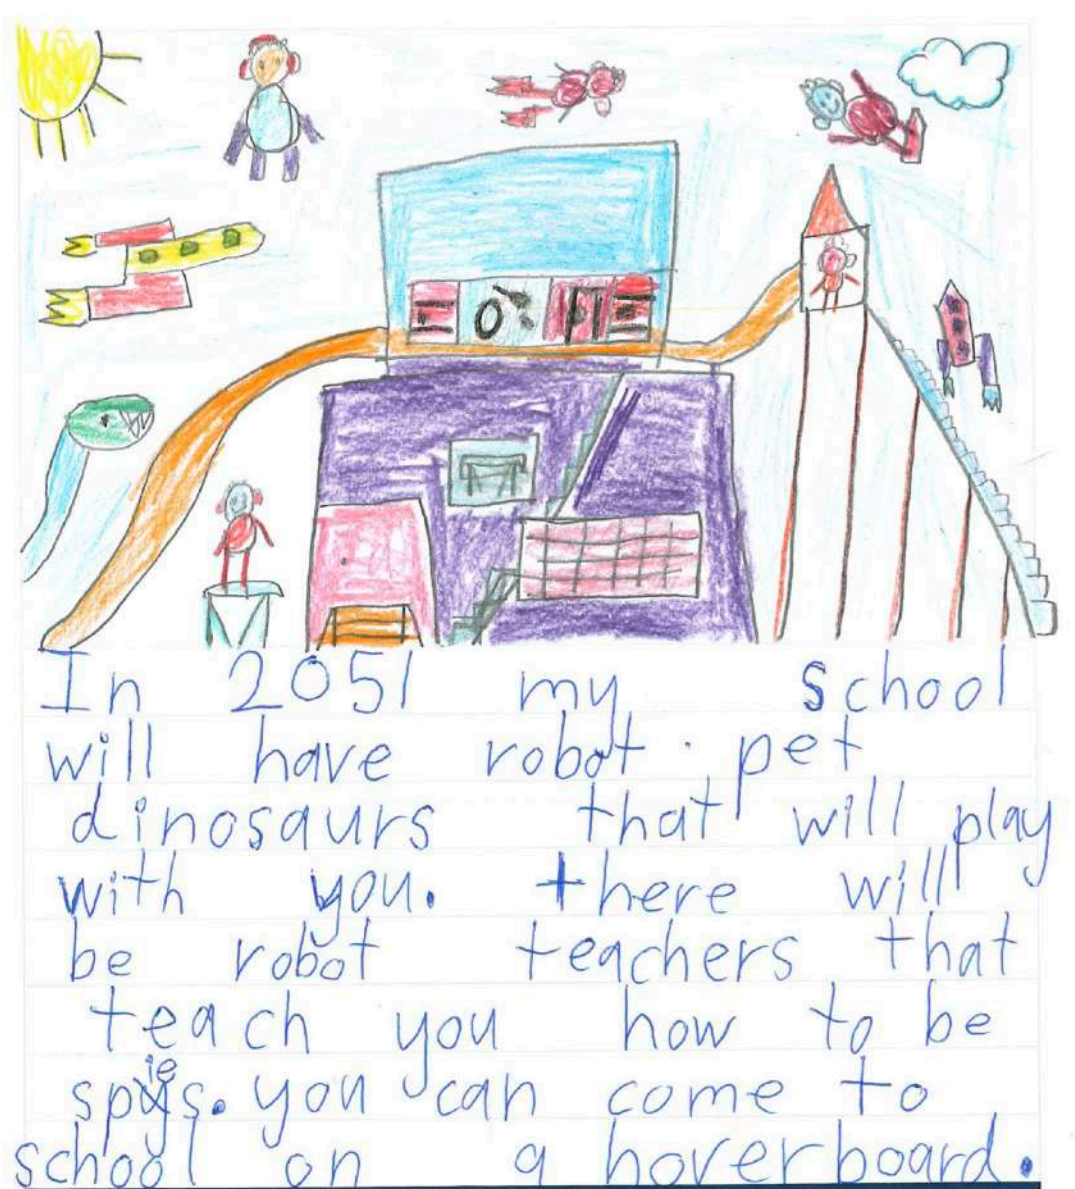 In 2051 my school
will have robot pet
dinosaurs that will play
with you. there will
be robot teachers that
teach you how to be
spies. you can come to
school on a hoverboard.